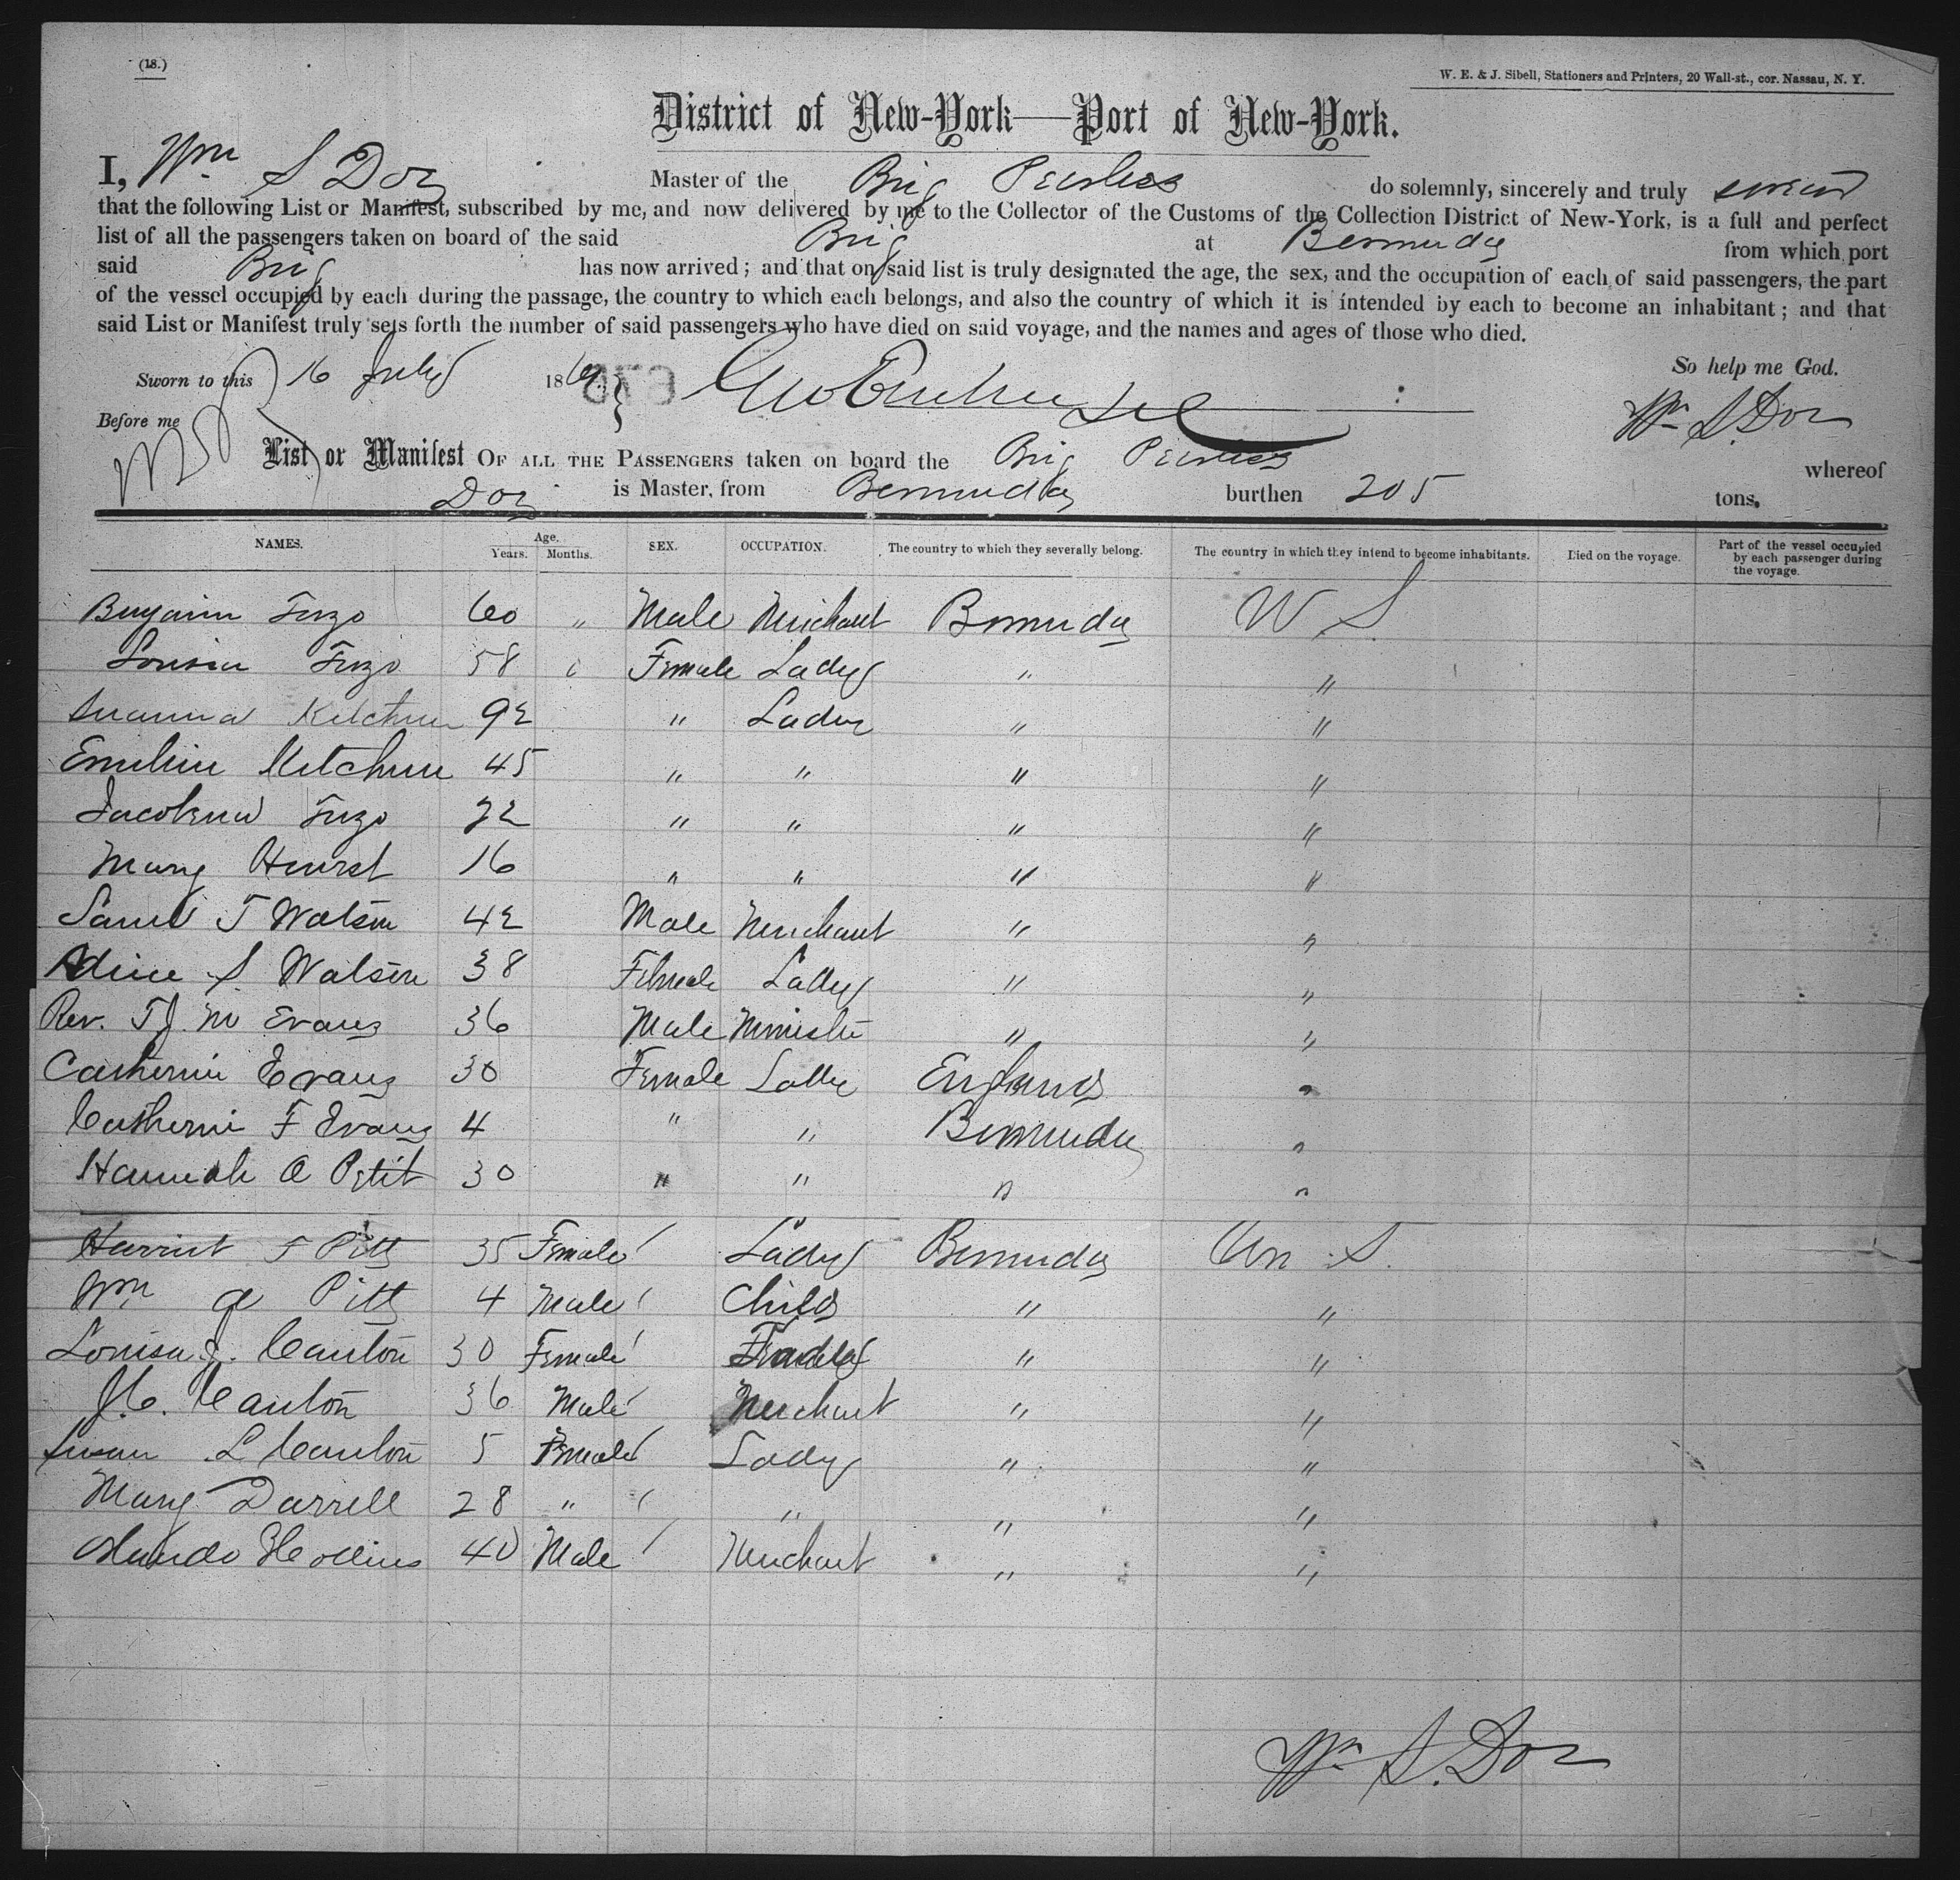 (18.)
W. E. & J. Sibell, Stationers and Printers, 20 Wall-st., cor. Nassau, N. Y.
District of New-York—Port of New-York.
I, Wm S Doz Master of the Brig Peerless do solemnly, sincerely and truly swear
that the following List or Manifest, subscribed by me, and now delivered by me to the Collector of the Customs of the Collection District of New-York, is a full and perfect
list of all the passengers taken on board of the said Brig at Bermuda from which port
said Brig has now arrived; and that on said list is truly designated the age, the sex, and the occupation of each of said passengers, the part
of the vessel occupied by each during the passage, the country to which each belongs, and also the country of which it is intended by each to become an inhabitant; and that
said List or Manifest truly sets forth the number of said passengers who have died on said voyage, and the names and ages of those who died.
So help me God.
Sworn to this 16 July 186
Wm S. Doz
Before me
List or Manifest OF ALL THE PASSENGERS taken on board the Brig Peerless whereof
Doz is Master, from Bermuda burthen 205 tons.
NAMES. Age. Years. Months. SEX. OCCUPATION. The country to which they severally belong. The country in which they intend to become inhabitants. Died on the voyage. Part of the vessel occupied by each passenger during the voyage.
Benjamin 60 " Male Merchant Bermuda S
Louisa 58 Female Lady " "
Ketchum 92 " Lady " "
Emeline Ketchum 45 " " " "
" " " "
Mary Hurst 16 " " " "
Saml T Watson 42 Male Merchant " "
S. Watson 38 Female Lady " "
Rev. T J. M Evans 36 Male Minister " "
Catherine Evans 30 Female Lady England "
Catherine F Evans 4 " " Bermuda "
Hannah A Petit 30 " " " "
Harriet T Pitt 35 Female Lady Bermuda Un S.
Wm Pitt 4 Male Child " "
Louisa J. Canton 30 Female Lady " "
J. C. Canton 36 Male Merchant " "
Susan L Canton 5 Female Lady " "
Mary Darrell 28 " " " "
Hollins 40 Male Merchant " "
Wm S. Doz